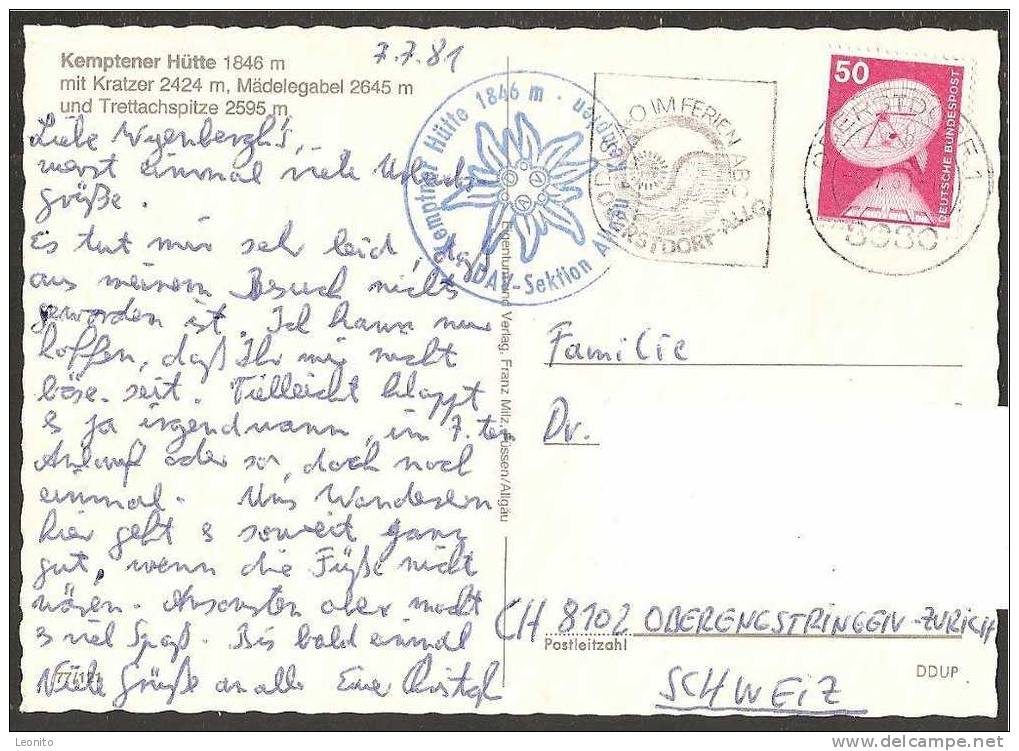 Kemptener Hütte 1846 m
mit Kratzer 2424 m, Mädelegabel 2645 m
und Trettachspitze 2595 m
7.7.81
Liebe
erst einmal viele Urlaubs
grüße.
Es tut mir sehr leid, daß
aus meinem Besuch nichts
geworden ist. Ich kann nur
hoffen, daß Ihr mir nicht
böse seit. Vielleicht klappt
es ja irgendwann, im 7. ten
Anlauf oder so, doch noch
einmal. Uns Wanderern
hier geht es soweit ganz
gut, wenn die Füße nicht
wären. Ansonsten aber macht
es viel Spaß. Bis bald einmal
Viele Grüße an alle Eure
77/121
Kemptner Hütte 1846 m
DAV-Sektion Allgäu Kempten
Eigentum und Verlag, Franz Milz, Füssen/Allgäu
HALLO IM FERIEN ABC
OBERSTDORF-ALLG.
50
DEUTSCHE BUNDESPOST
OBERSTDORF 1
Familie
Dr.
CH 8102 OBERENGSTRINGEN-ZÜRICH
Postleitzahl
SCHWEIZ
DDUP
Leonito
www.delcampe.net